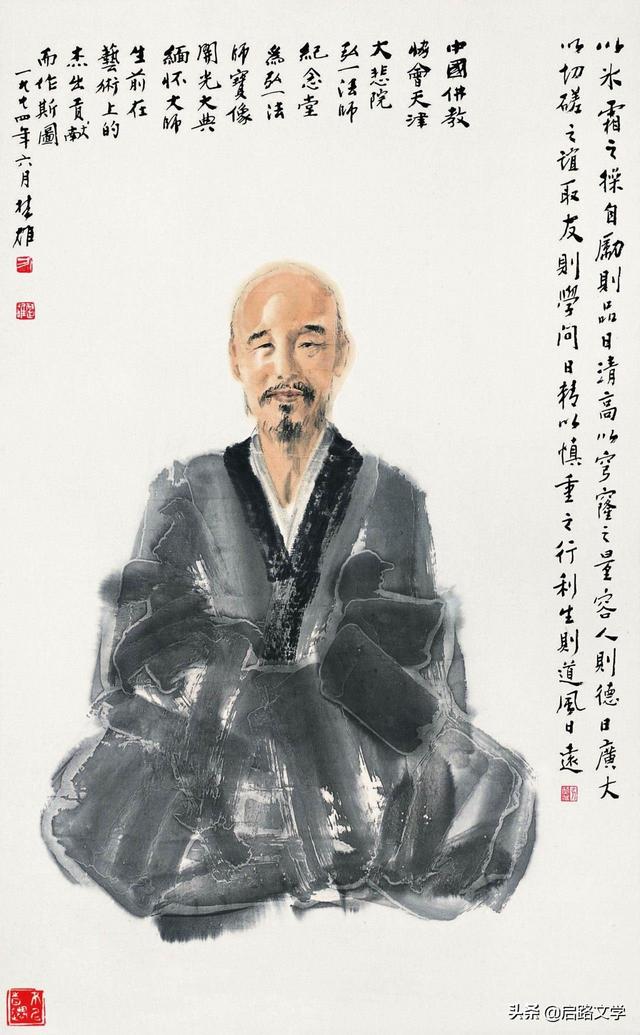 以氷霜之操自勵則品日清高以穹窿之量容人則德日廣大
以切磋之誼取友則學問日精以慎重之行利生則道風日遠
中國佛教
協會天津
大悲院
弘一法師
紀念堂
為弘一法
師寶像
開光大典
緬懷大師
生前在
藝術上的
杰出貢献
而作斯圖
一九九四年六月
头条 @启路文学